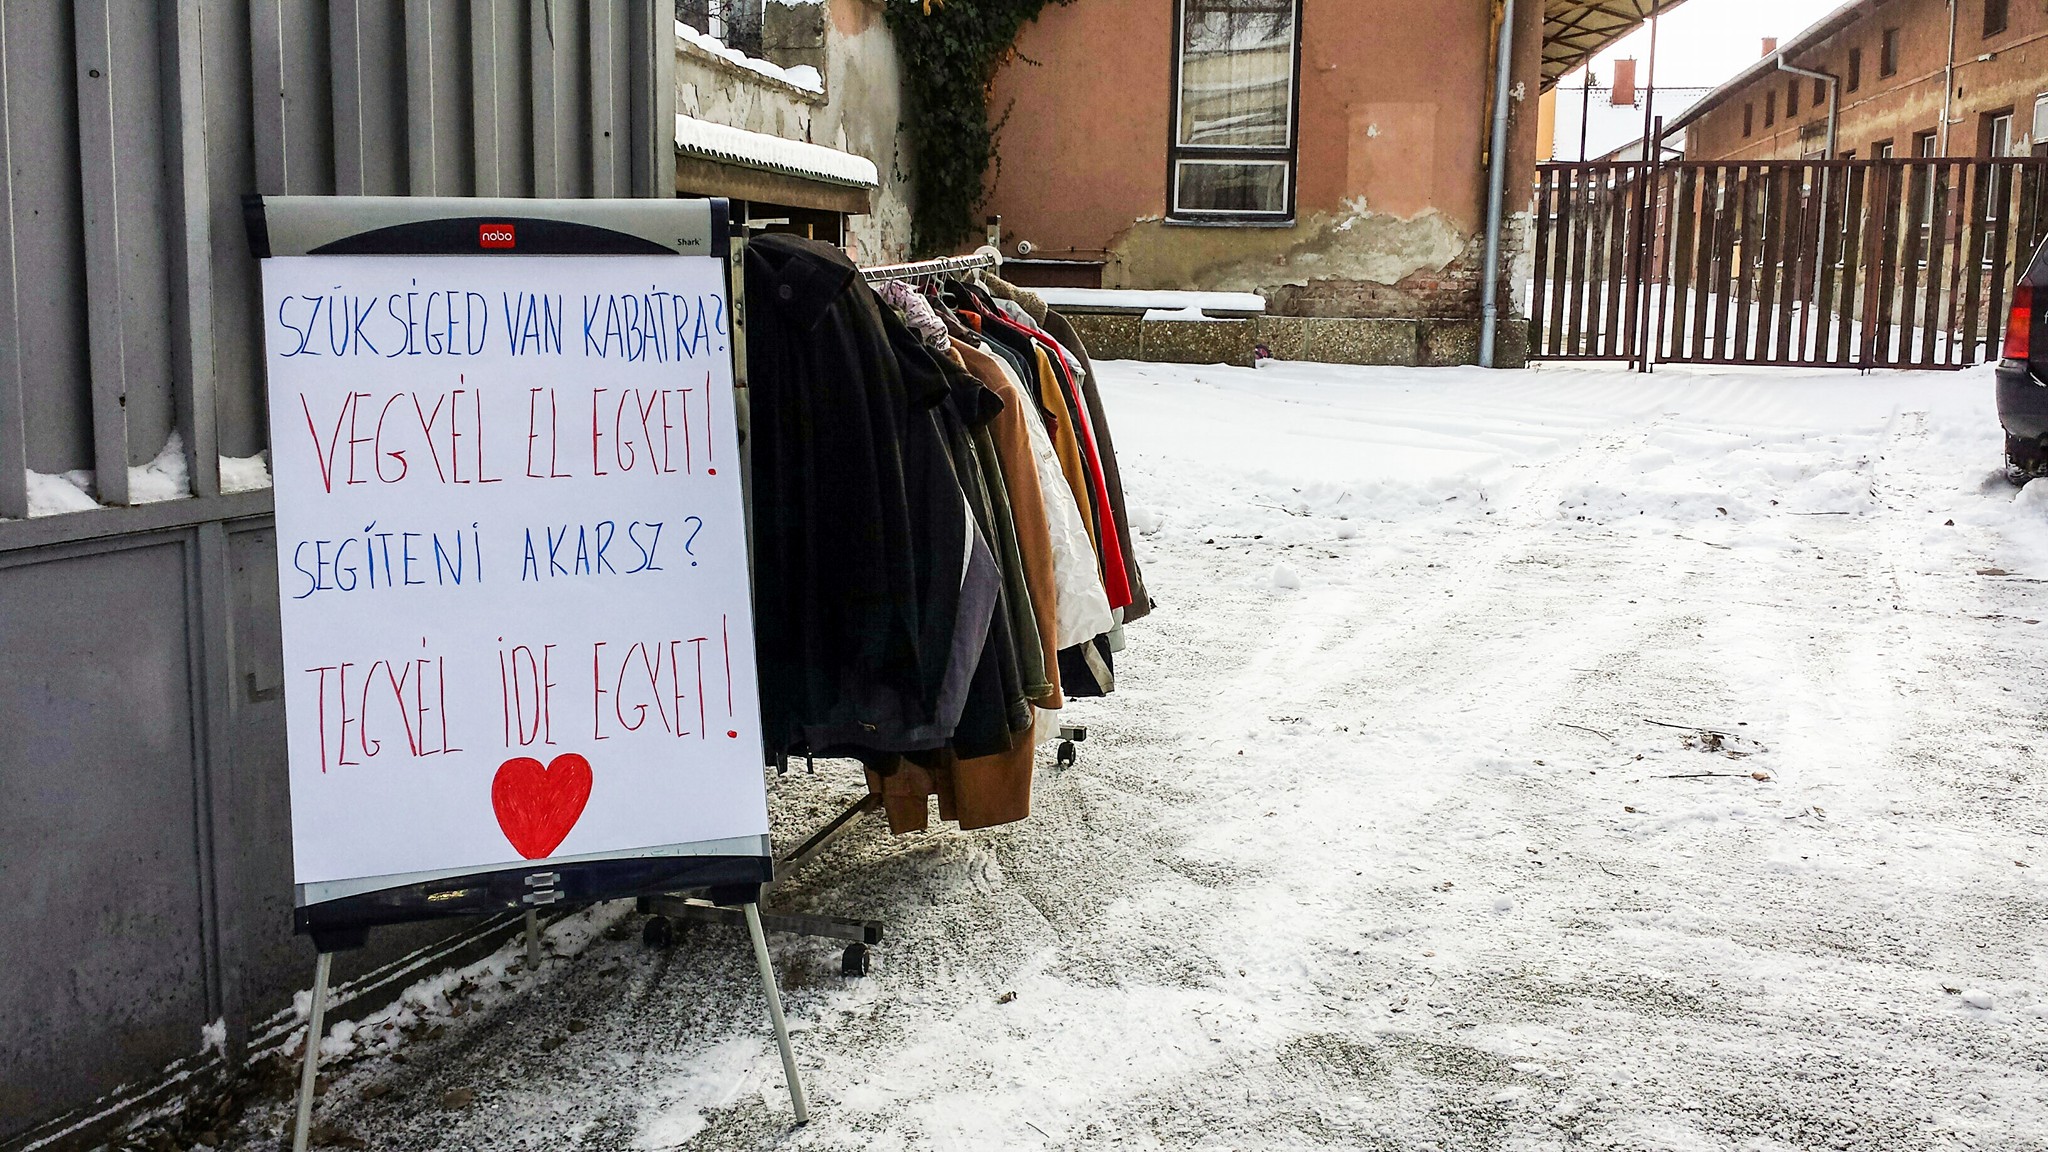 nobo
Shark™
SZÜKSÉGED VAN KABÁTRA?
VEGYÉL EL EGYET!
SEGÍTENI AKARSZ?
TEGYÉL IDE EGYET!